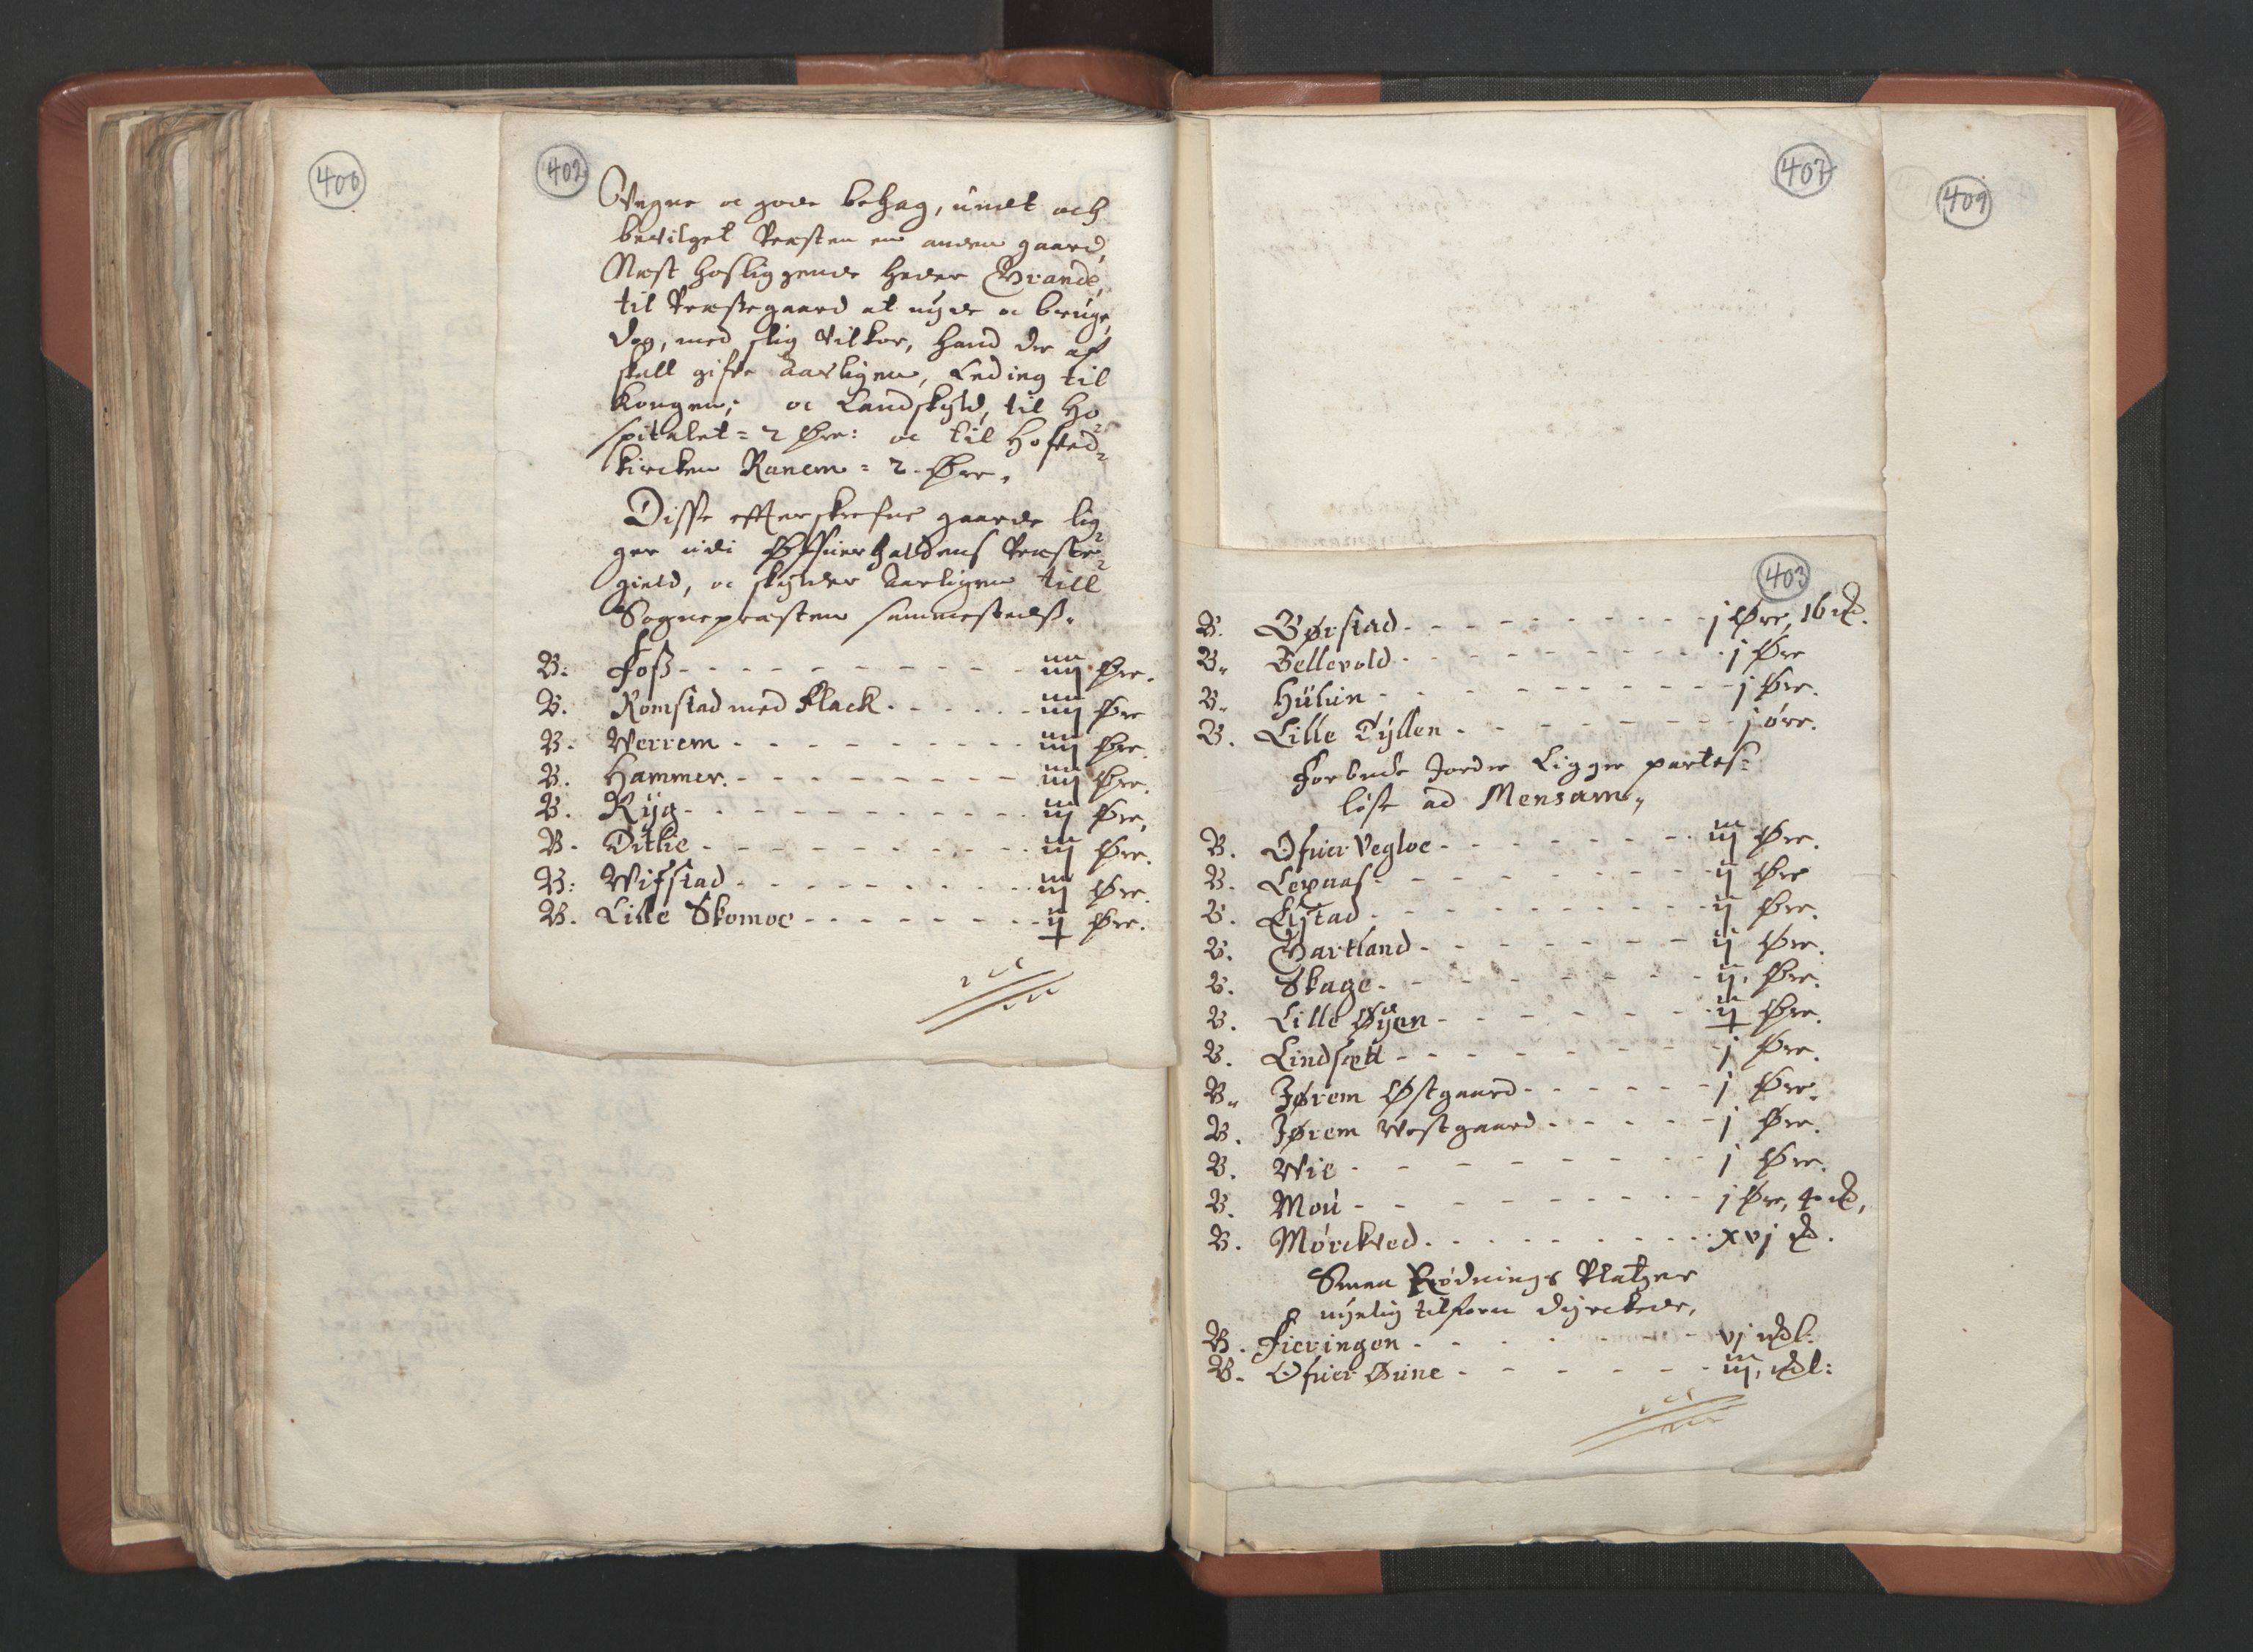 400
402
Wegne oc gode behag, undt och
bevilget Præsten en anden gaard,
Næst hosliggende heder Brande,
til Præstegaard at nyde oc bruge,
dog, med slig Vilkor, hand der af
skall gifve Aarligen, Leding til
Kongen; oc Landskyld, til Ho=
spitalet = 2 Øre: oc til Hofved=
kircken Ranem = 2. Øre.
Disse effterskrefne gaarde lig=
ger udi Øffuerhaldens Præste=
gield, oc skylder Aarligen till
Sognepræsten sammestedss.
B: Foss - - - - - - - - - - - iiij Øre.
B. Romstad med Klack. - - - - - iiij Øre
B. Werrem - - - - - - - - - iiij Øre.
B. Hammer. - - - - - - - - iiij Øre.
B. Ryg - - - - - - - - - - - iij Øre,
B. Ditlie - - - - - - - - - - iij Øre.
B: Wifstad - - - - - - - - - iij Øre.
B. Lille Skomoe - - - - - - - - ij Øre.
407
409
403
B. Børstad - - - - - - - - - j Øre, 16 d.
B. Bellevold - - - - - - - - - j Øre
B. Hülün - - - - - - - - - - j Øre.
B. Lille Tyllen - - - - - - - - j øre.
Forbde Jorder Ligger partes=
løse ad Mensam,
B. Ofuer Vegloe - - - - - - - iij Øre.
B. Lepaas - - - - - - - - - ij Øre
B. Lystad - - - - - - - - - - ij Øre.
B. Bartland - - - - - - - - ij Øre.
B. Skage - - - - - - - - - ij. Øre.
B. Lille Øyen - - - - - - - ij Øre.
B. Lindsætt - - - - - - - - - j Øre.
B. Jørem Østgaard - - - - - - j Øre.
B. Jørem Westgaard - - - - - j Øre.
B. Wie - - - - - - - - - j Øre.
B. Moü - - - - - - - - - - j Øre, 4 d,
B. Mørckved. - - - - - - - - xvj d.
Smaa Rødnings Platzer
nylig tilforn dyrckede,
B. Fieringen - - - - - - - vj
B. Ofuer Øüne - - - - - - iij,